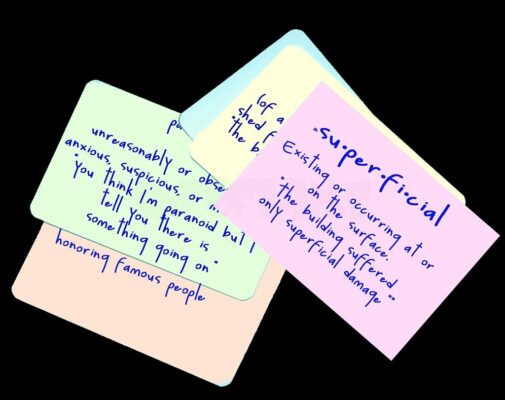 su·per·fi·cial
Existing or occurring at or
on the surface.
"the building suffered
only superficial damage"
(of a
shed f
"the b
unreasonably or obse
anxious, suspicious, or m
"You think I'm paranoid but I
tell you there is
something going on"
honoring famous people